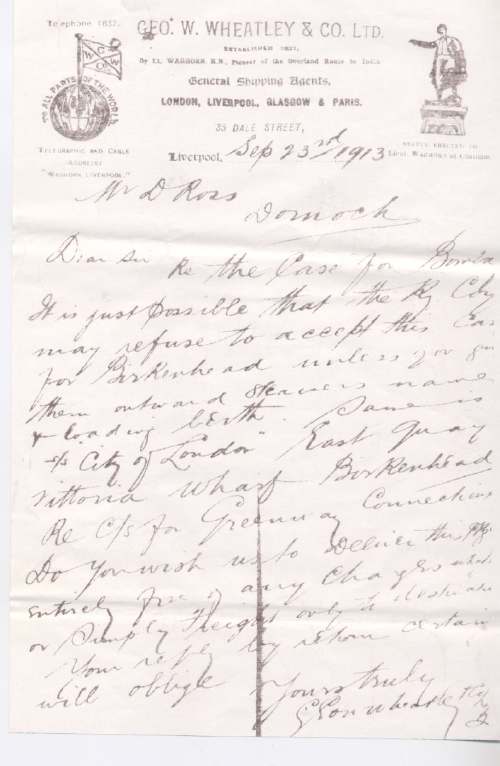 Telephone 1637.
GEO. W. WHEATLEY & CO. LTD.
ESTABLISHED 1837,
By Lt. WAGHORN R.N., Pioneer of the Overland Route to India
General Shipping Agents,
LONDON, LIVERPOOL, GLASGOW & PARIS.
35 DALE STREET,
G W W Co
TO ALL PARTS OF THE WORLD
TELEGRAPHIC AND CABLE
ADDRESS:
"WAGHORN LIVERPOOL."
STATUE ERECTED TO
Lieut. WAGHORN AT CHATHAM
Liverpool, Sep 23rd 1913
Mr D Ross
Dornoch
Dear Sir
Re the Case for Bomba
It is just possible that the Ry Coy
may refuse to accept this Cas
for Birkenhead unless you give
them outward steamers name
& loading berth. Same is
s/s "City of London" East Quay
Vittoria Wharf Birkenhead
Re C/s for Greenway Connecticu
Do you wish us to deliver this pkge
entirely free of any charges
or simply Freight only to destinatn
Your reply by return
will oblige Yours truly
Geo W Wheatley & Co